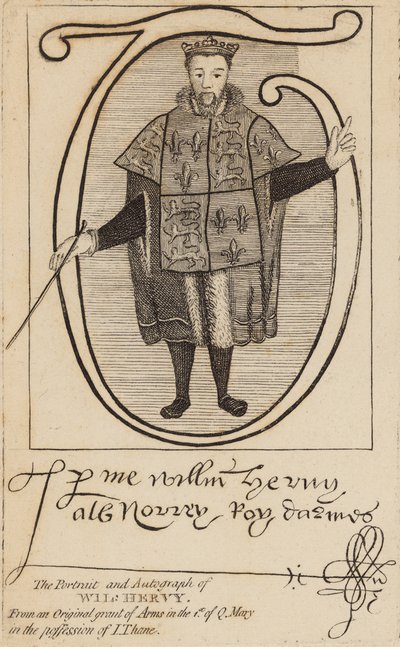 p me willm hervy
als Norrey Roy darmes
The Portrait and Autograph of
WIL: HERVY.
From an Original grant of Arms in the 1.st of Q. Mary
in the possession of I. Thane.